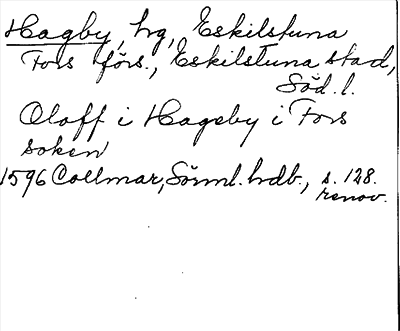 Hagby, hg, Eskilstuna
Fors förs., Eskilstuna stad,
Söd. l.
Oloff i Hageby i Fors
soken
1596 Collmar, Sörml. hdb., s. 128.
renov.